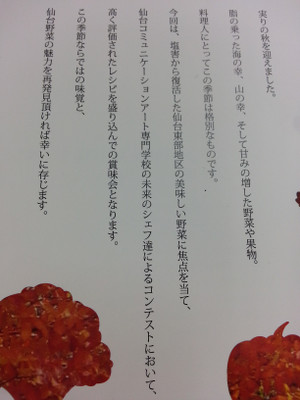 実りの秋を迎えました。
脂の乗った海の幸、山の幸、そして甘みの増した野菜や果物。
料理人にとってこの季節は格別なものです。
今回は、塩害から復活した仙台東部地区の美味しい野菜に焦点を当て、
仙台コミュニケーションアート専門学校の未来のシェフ達によるコンテストにおいて、
高く評価されたレシピを盛り込んでの賞味会となります。
この季節ならではの味覚と、
仙台野菜の魅力を再発見頂ければ幸いに存じます。